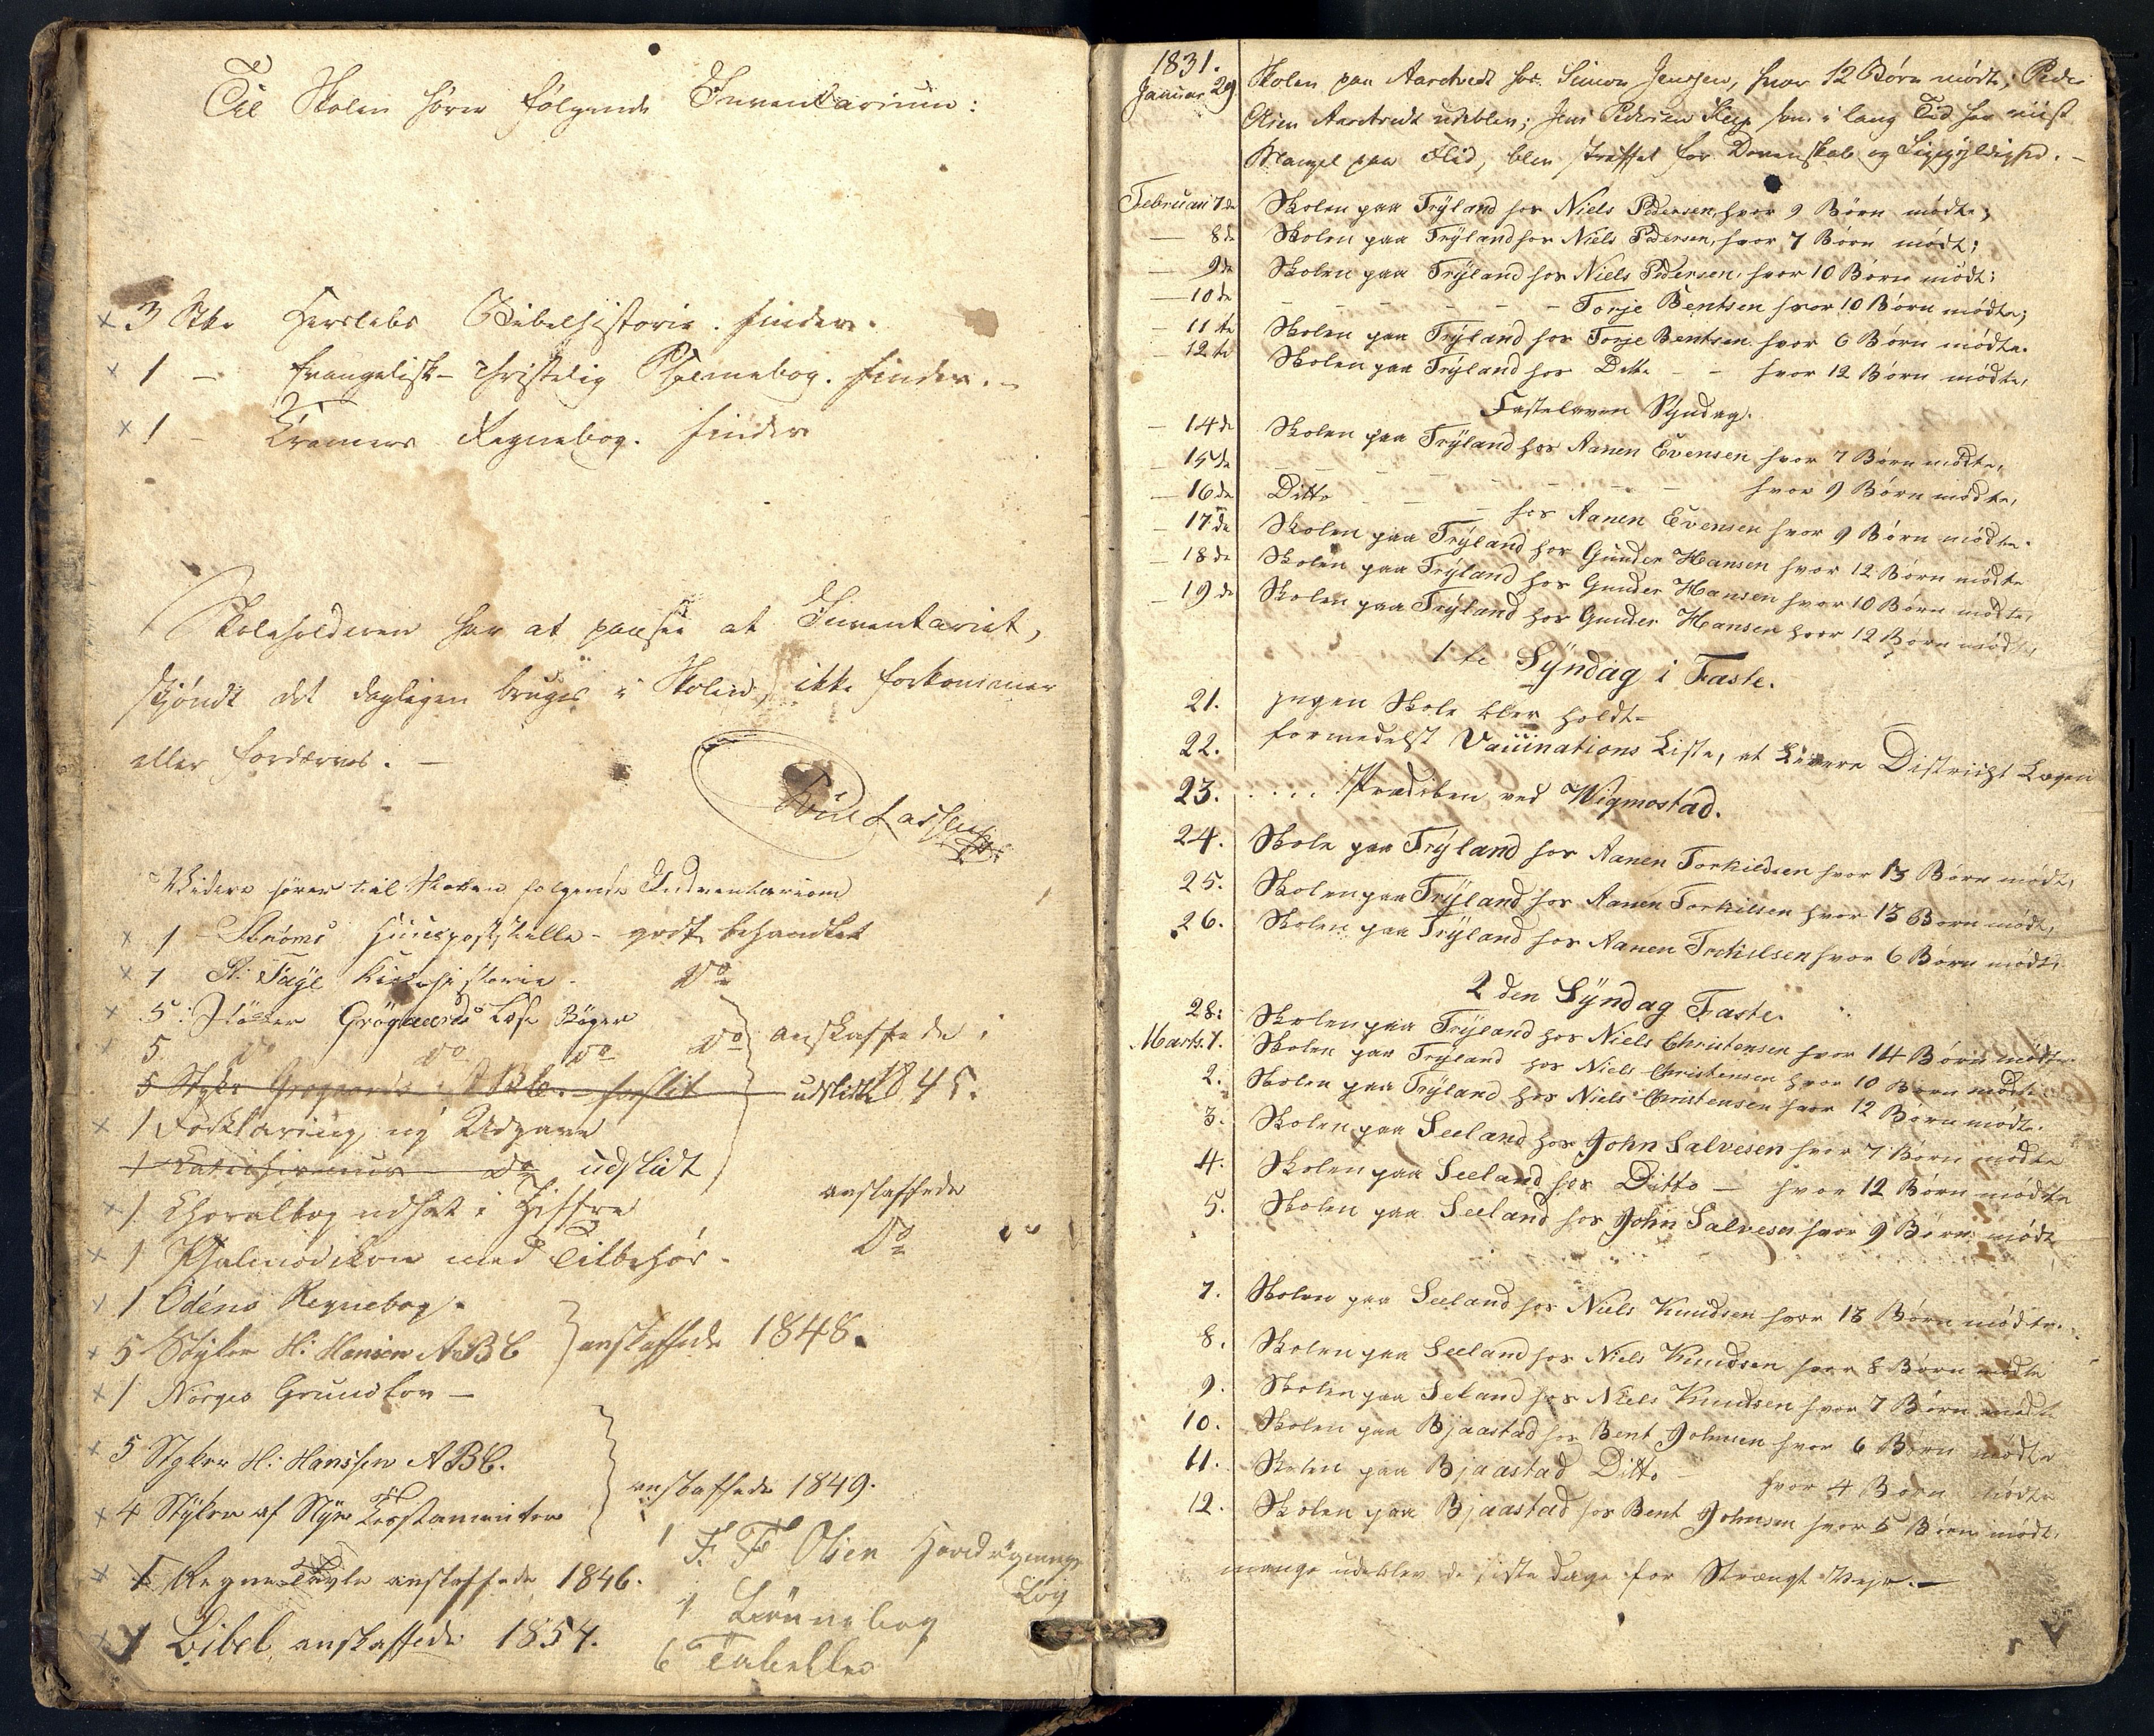 Til Skolen hører følgende Inventarium:
x 3 Stkr Herslebs Bibelhistorie. findes.
x 1 - Evangelisk-christelig Psalmebog. findes. -
x 1 - Cramers Regnebog. findes
Skoleholderen har at paasee at Inventariet,
skjøndt det dagligen bruges i Skolen, ikke forkommer
eller fordærves. -
Videre hører til Skolen følgende Indventarium
x 1 Strøms Huuspostille - godt behandlet
x 1 A: Faye Kirkehistorie - Do
x 5: Støkker Grøgaards Læse Bøger Do
5 Do Do Do Do anskaffede i
5 Stykr Grogaards ABC. forslit udslidte 1845.
x 1 Forklaring, ny Udgave
1 Katechismus Do udslidt
x 1 Choralbog udsat i Ziffre anskaffede
x 1 Psalmodikon med Tilbehør - Do
x 1 Odéns Regnebog.
x 5 Stykr H: Hansen ABC anskaffede 1848.
x 1 Norges Grundlov -
x 5 Stykr H: Hanssen ABC.
anskaffede 1849.
x 4 Stykr af Nye Testamenter
1 F. F Olsen
x 1 Regne Tavle anskaffede 1846.
1 bog
x 1 Bibel anskaffede 1854.
6 Tabeller
1831.
Januar 29 Skolen paa Aarstvedt hos Simon Jensen, hvor 12 Børn mødte; Peder
Olsen Aarstvedt udeblev; Jens Pedersen som i lang Tid har viist
Mangel paa Flid, blev straffet for Dovenskab og Ligegyldighed. -
Februari 7de Skolen paa Trÿland hos Niels Pedersen, hvor 9 Børn mødte;
- 8de Skolen paa Trÿland hos Niels Pedersen, hvor 7 Børn mødt;
- 9de Skolen paa Trÿland hos Niels Pedersen, hvor 10 Børn mødt;
- 10de - - - - - - - Torje Bentsen hvor 10 Børn mødte;
- 11te Skolen paa Trÿland hos Torje Bentsen hvor 6 Børn mødte.
- 12te Skolen paa Trÿland hos Ditto - - hvor 12 Børn mødte,
Fastelaven Sÿndag.
- 14de Skolen paa Trÿland hos Aanen Evensen hvor 7 Børn mødte,
- 15de - - - - - - - - hvor 9 Børn mødte,
- 16de Ditto - - - hos Aanen Evensen hvor 9 Børn mødte.
- 17de Skolen paa Trÿland hos Gunder Hansen hvor 12 Børn mødte
- 18de Skolen paa Trÿland hos Gunder Hansen hvor 10 Børn mødte,
- 19de Skolen paa Trÿland hos Gunder Hansen hvor 12 Børn mødte,
1te Sÿndag i Faste.
21. Ingen Skole blev holdt-
22. formedelst Vaccinations Liste, at Levere Districht Lægen
23. .... Prædiken ved Wigmostad.
24. Skole paa Trÿland hos Aanen Torkildsen hvor 13 Børn mødt,
25. Skolen paa Trÿland hos Aanen Torkilsen hvor 13 Børn mødt,
26. Skolen paa Trÿland hos Aanen Torkilsen hvor 6 Børn mødt,
2den Sÿndag Faste.
28: Skolen paa Trÿland hos Niels Christensen hvor 14 Børn mødte
Marts. 1. Skolen paa Trÿland hos Niels Christensen hvor 10 Børn mødte
2. Skolen paa Trÿland hos Niels Christensen hvor 12 Børn mødte.
3. Skolen paa Seeland hos John Salvesen hvor 7 Børn mødte
4. Skolen paa Seeland hos Ditto - hvor 12 Børn mødte
5. Skolen paa Seeland hos John Salvesen hvor 9 Børn mødte
7. Skolen paa Seeland hos Niels Knudsen hvor 13 Børn mødte.
8. Skolen paa Seeland hos Niels Knudsen hvor 8 Børn mødte
9. Skolen paa Seland hos Niels Knudsen hvor 7 Børn mødte
10. Skolen paa Bjaastad hos Bent Johnsen hvor 6 Børn mødte
11. Skolen paa Bjaastad Ditto - hvor 4 Børn mødte
12. Skolen paa Bjaastad hos Bent Johnsen hvor 5 Børn mødt.
mange udeblev de siste Dage for Strængt Vejr. -